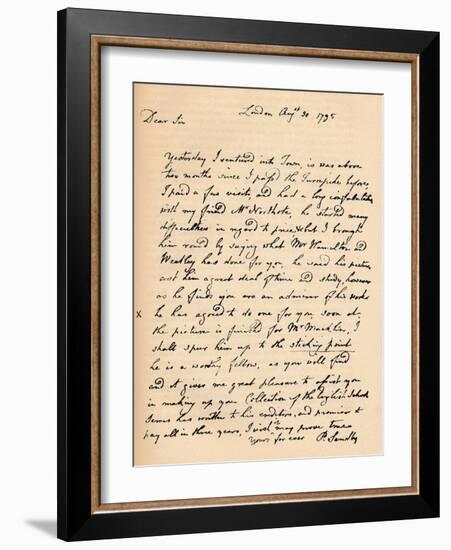 London Augst 30 1795
Dear Sir
Yesterday I ventured into Town, is was above
two months since I pass'd the Turnpike before,
I paid a few visits and had a long confabulation
with my friend Mr Northcote, he started many
difficulties in regard to price but I brought
him round by saying what Mr Hamilton and
Wheatley has done for you he said his pictures
cost him a great deal of time and study, however
as he finds you are an admirer of his works
x he has agreed to do one for you soon as
the picture is finished for Mr Macklin, I
shall spur him up to the sticking point
he is a worthy fellow, as you will find
and it gives me great pleasure to assist you
in making up your Collection of the English School
has written to his creditors, and promises to
pay all in three years, I wish may prove true
Yours for ever P. Sandby